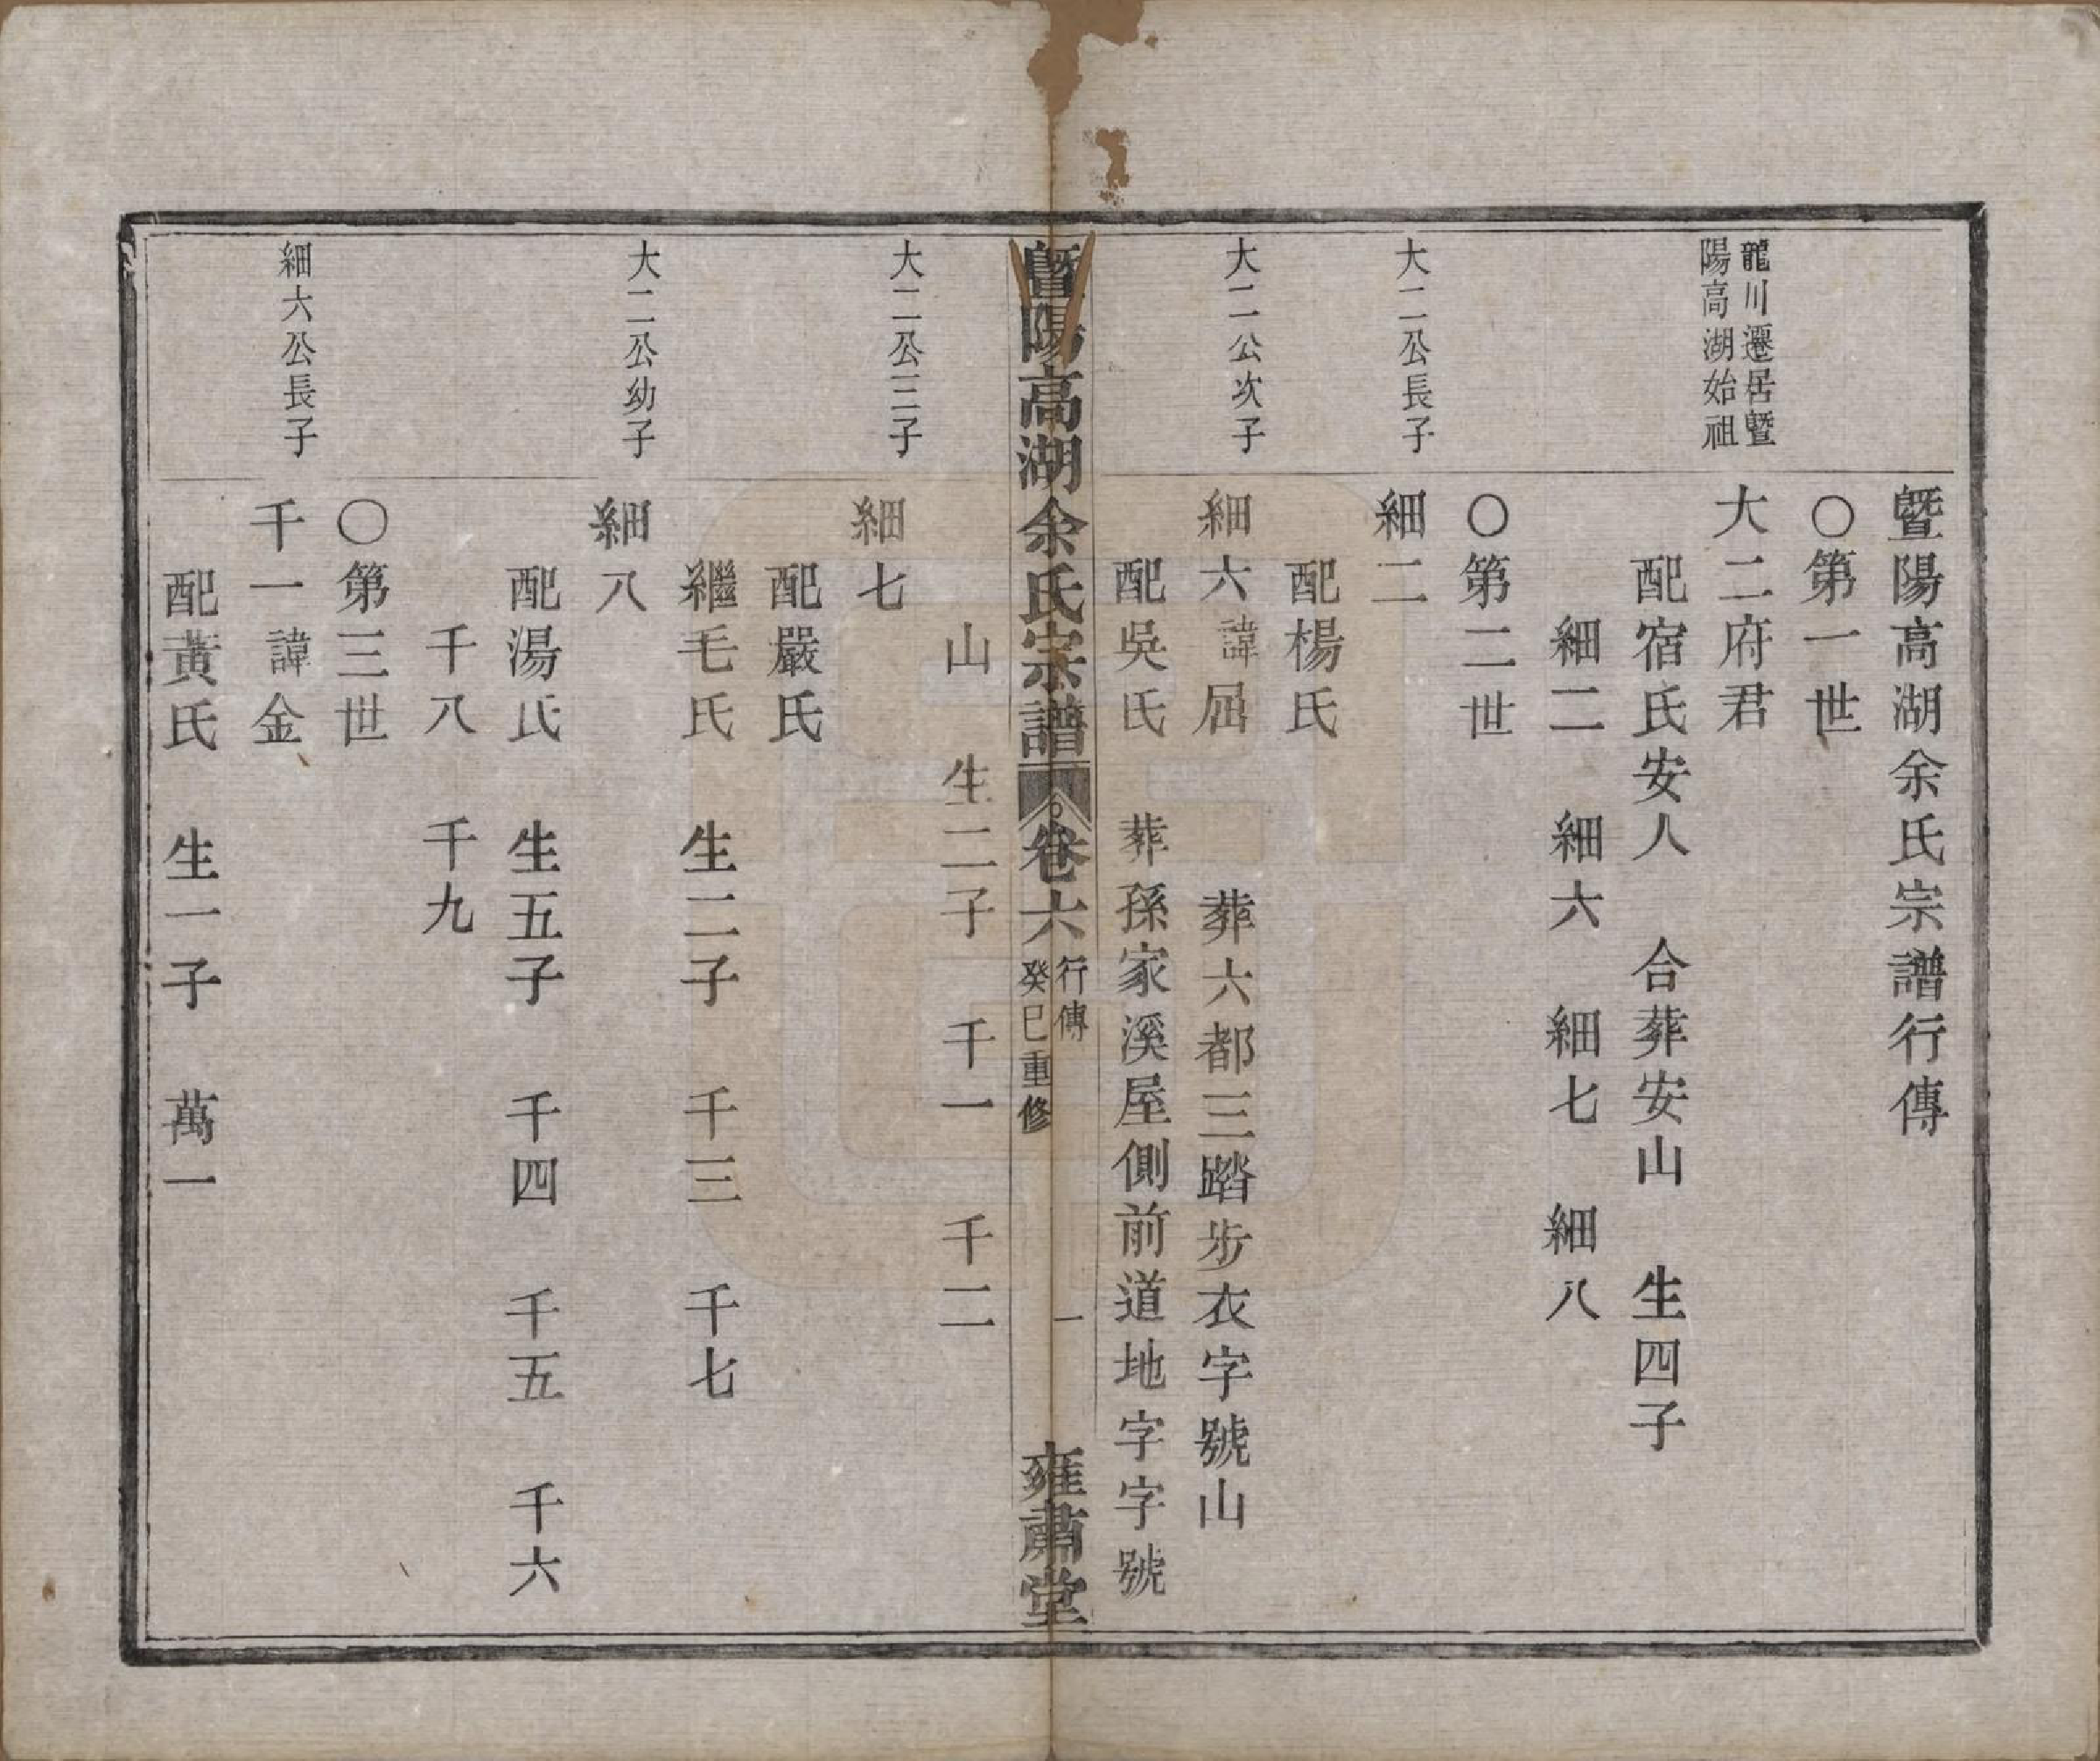 暨陽高湖余氏宗譜行傳
○第一世
龍川遷居暨
陽高湖始祖
大二府君
配宿氏安人　合葬安山　生四子
細二　細六　細七　細八
○第二世
大二公長子
細二
配楊氏
大二公次子
細六諱屆　葬六都三踏步衣字號山
配吳氏　葬孫家溪屋側前道地字字號
暨陽高湖余氏宗譜　卷六　行傳　癸巳重修　一　雍肅堂
山　生二子　千一　千二
大二公三子
細七
配嚴氏
繼毛氏　生二子　千三　千七
大二公幼子
細八
配湯氏　生五子　千四　千五　千六
千八　千九
○第三世
細六公長子
千一諱金
配黃氏　生一子　萬一